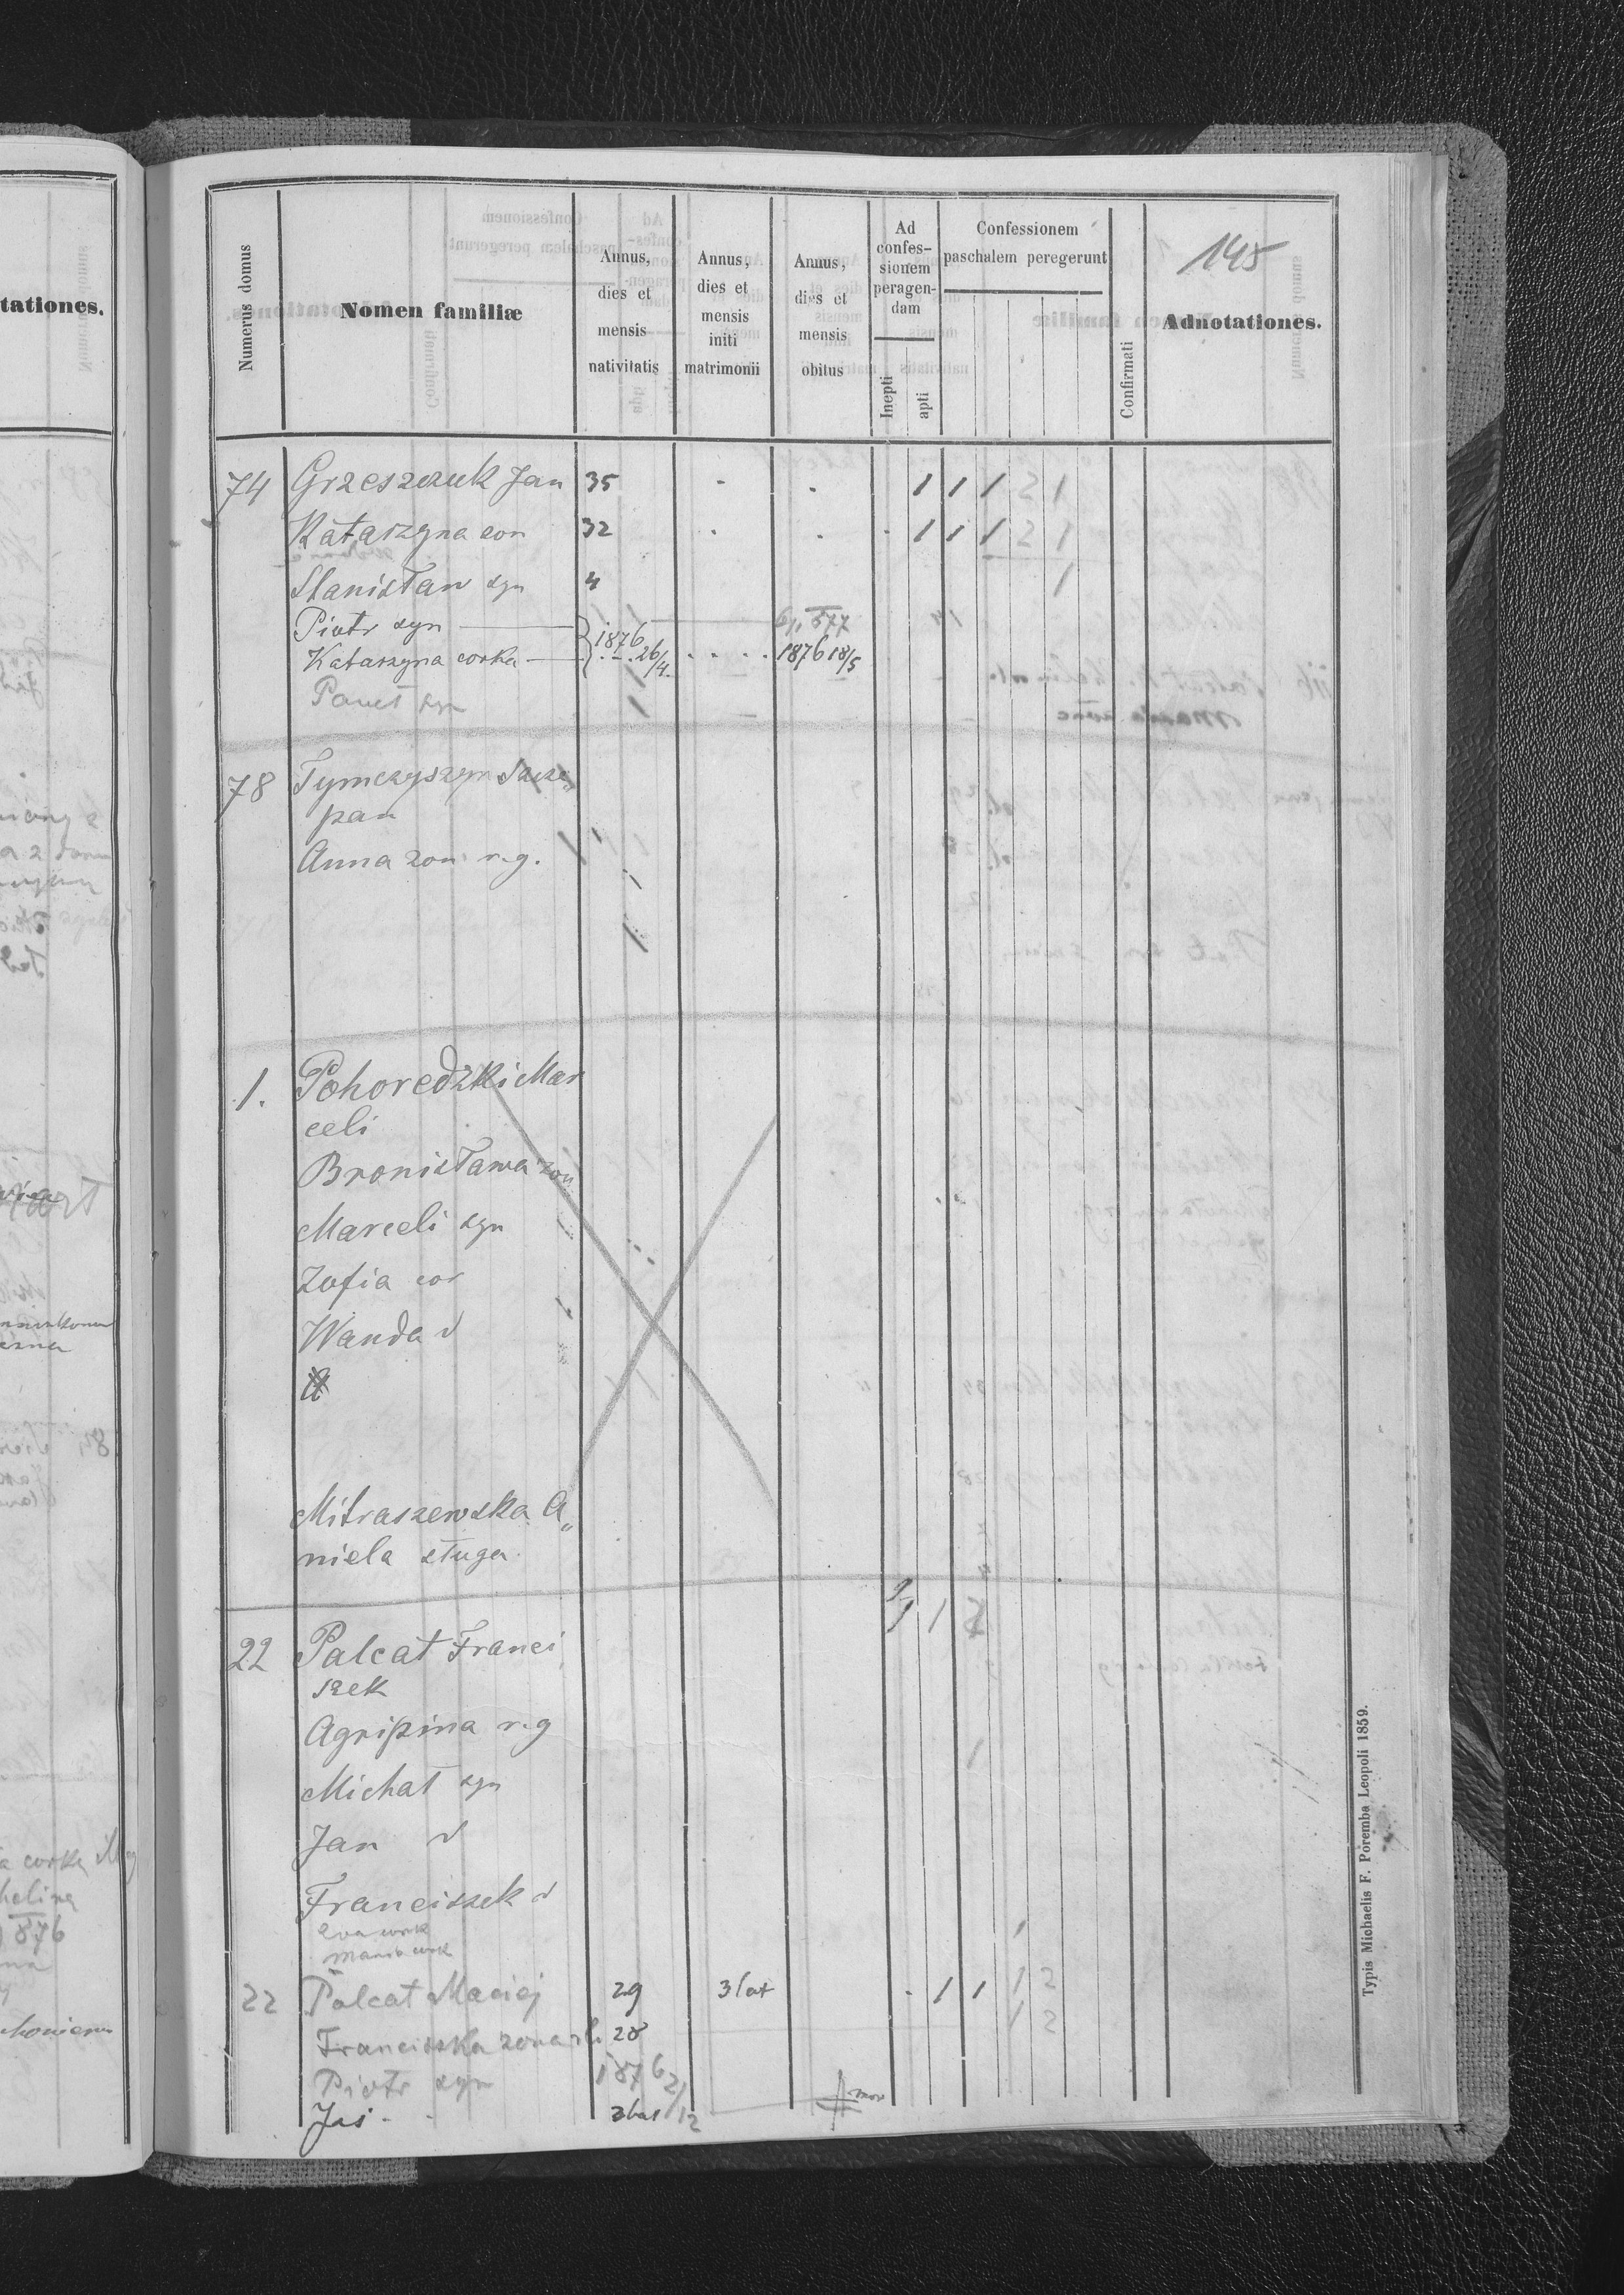 145
Numerus domus
Nomen familiæ
Annus, dies et mensis nativitatis
Annus, dies et mensis initi matrimonii
Annus, dies et mensis obitus
Ad confessionem peragendam
Inepti
apti
Confessionem paschalem peregerunt
Confirmati
Adnotationes.
tationes.
74 Grzeszczuk Jan 35 1 1 1 2 1
Katarzyna żon 32 1 1 1 2 1
Stanisław syn 4 1
Piotr syn 877
Katarzyna corka 1876 26/4. 1876 18/5
Paweł syn
78 Tymczyszyn Szcze„
pan
Anna żon r.g.
1. Pohoredzki Mar
celi
Bronisława żon
Marceli syn
Zofia cor
Wanda d
Mitraszewska A„
niela sługa
22 Palcat Franci
szek
Agripina r.g
Michał syn
Jan d
Franciszek d
Ewa cork
Maria cork
22 Palcat Maciej 29 3 lat 1 1 1 2
Franciszka żona 28 1 2
Piotr syn 1876 2/12
Jaś
Typis Michaelis F. Poremba Leopoli 1859.